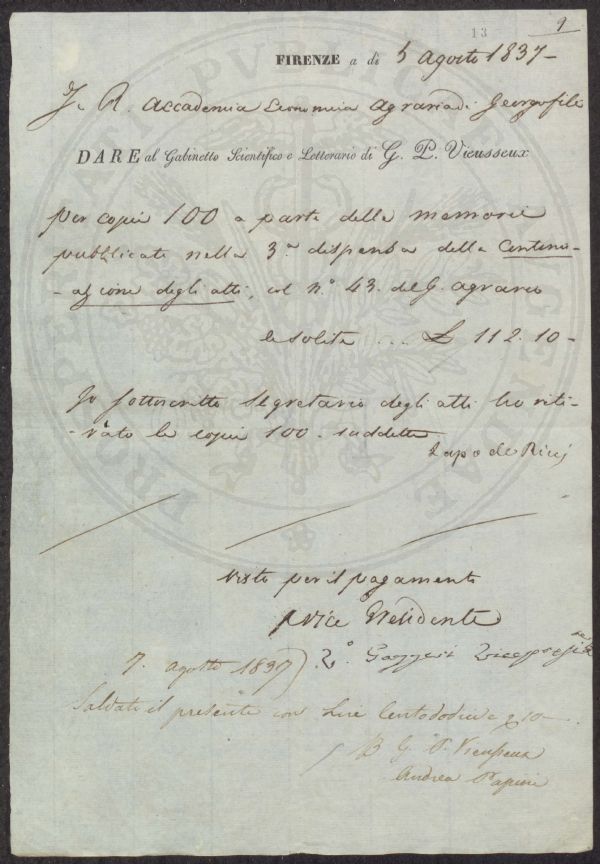 13
9
FIRENZE a di 5 Agosto 1837-
I. R. Accademia Economica Agraria di Georgofili
DARE al Gabinetto Scientifico e Letterario di G. P. Vieusseux
per copie 100 a parte delle memorie
pubblicate nella 3.a dispensa della Continu-
-azione degli atti, col n.o 43. del G. agrario
le solite ... £ 112. 10-
Io sottoscritto Segretario degli atti ho riti-
-rato le copie 100. suddette
Lapo de Ricci
Visto per il pagamento
Vice Presidente
7. agosto 1837 Gazzeri vicepresid.te
Saldato il presente con Lire Centododici e 10-
G. P. Vieusseux
Andrea Papini
PROSPERITATI PUBLICAE AUGENDAE